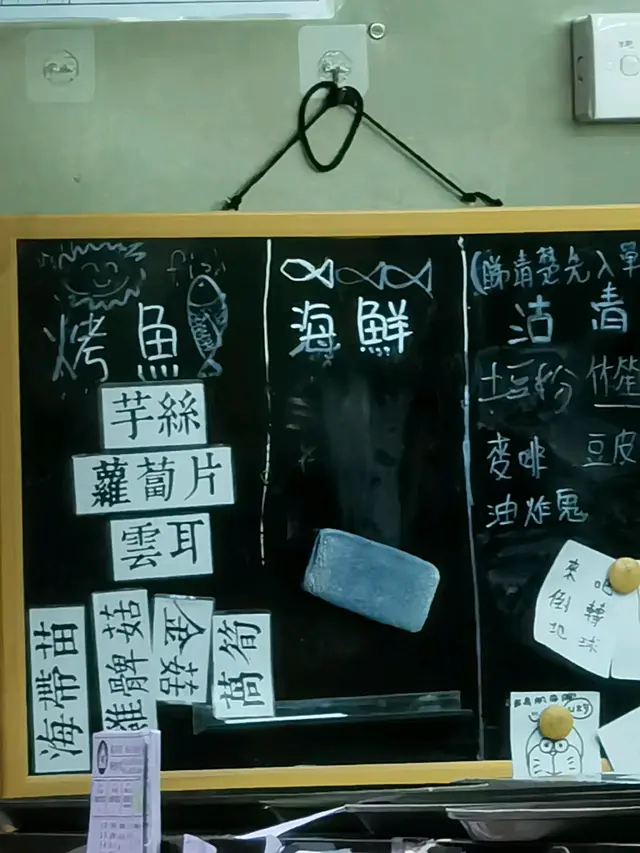 fish
烤魚
芋絲
蘿蔔片
雲耳
海帶苗
雞髀菇
金菇
萵筍
海鮮
(睇清楚先入單
沽清
土豆粉 竹笙
麥啡 豆皮
油炸鬼
來吧
倒轉
地球